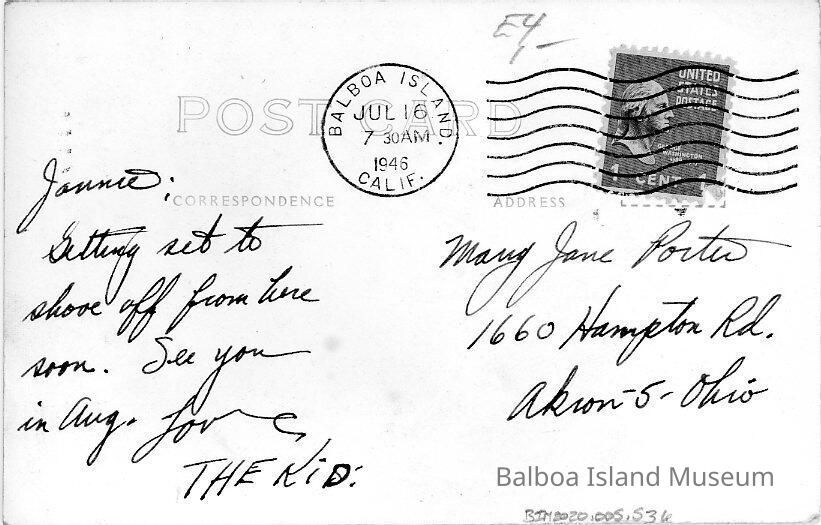 E4
1,-
POST CARD
BALBOA ISLAND.
JUL 16
7 30AM
1946
CALIF.
UNITED
STATES
POSTAGE
WASHINGTON
1 CENT
CORRESPONDENCE
ADDRESS
Jannie;
Getting set to
shove off from here
soon. See you
in Aug. Love
THE KID.
Mary Jane Porter
1660 Hampton Rd.
Akron-5-Ohio
Balboa Island Museum
BIM2020.005.536